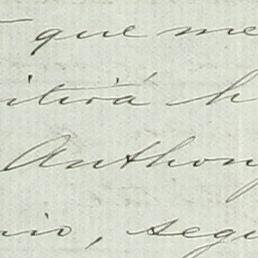 que me
itirá h
Anthony
io, segu